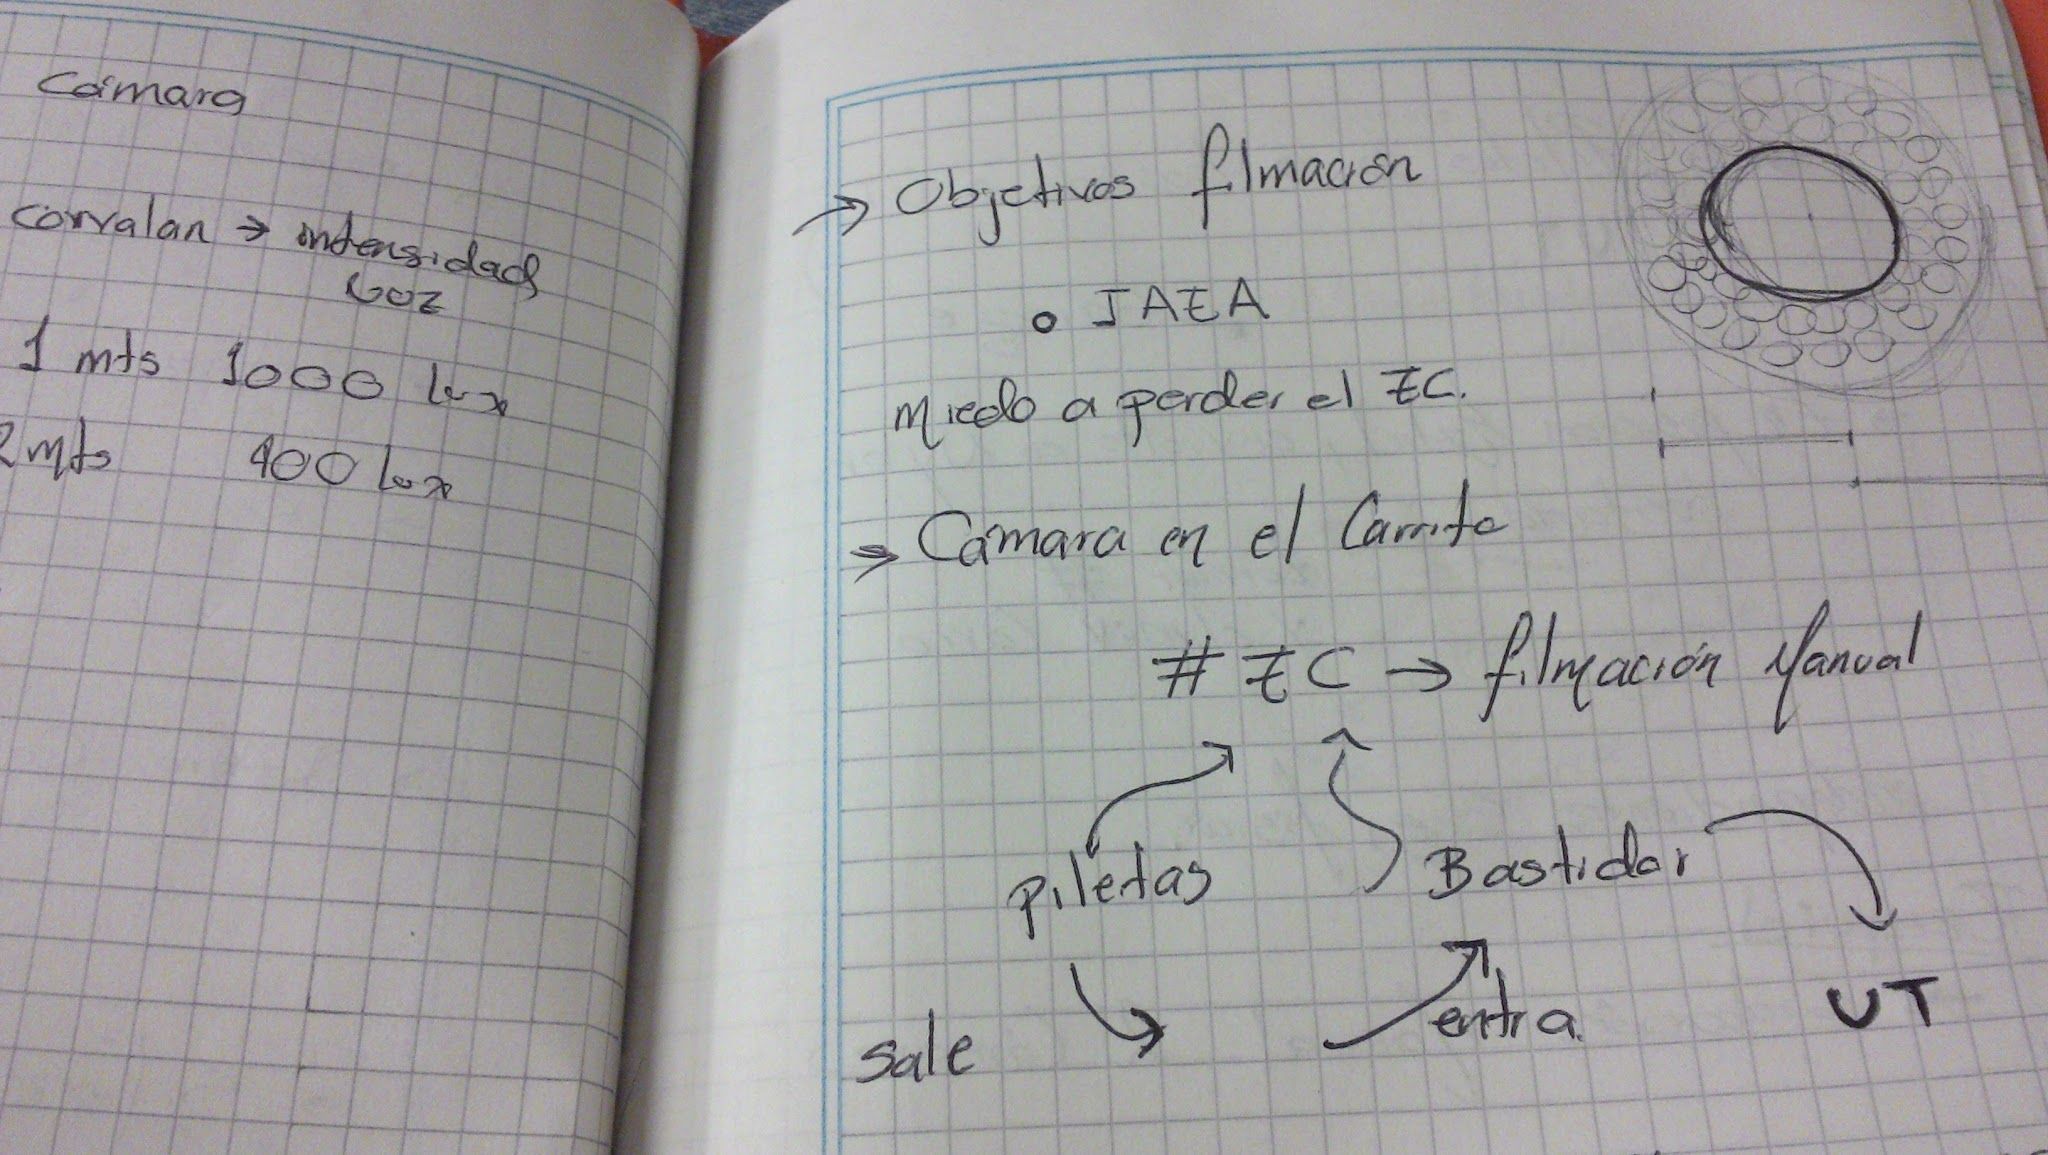 Cámara
corvalan → intensidad
luz
1 mts 1000 lux
2 mts 400 lux
→ Objetivos filmación
• IAEA
Miedo a perder el EC.
→ Cámara en el Carrito
# EC → filmación Manual
piletas
Bastidor
sale
entra
UT